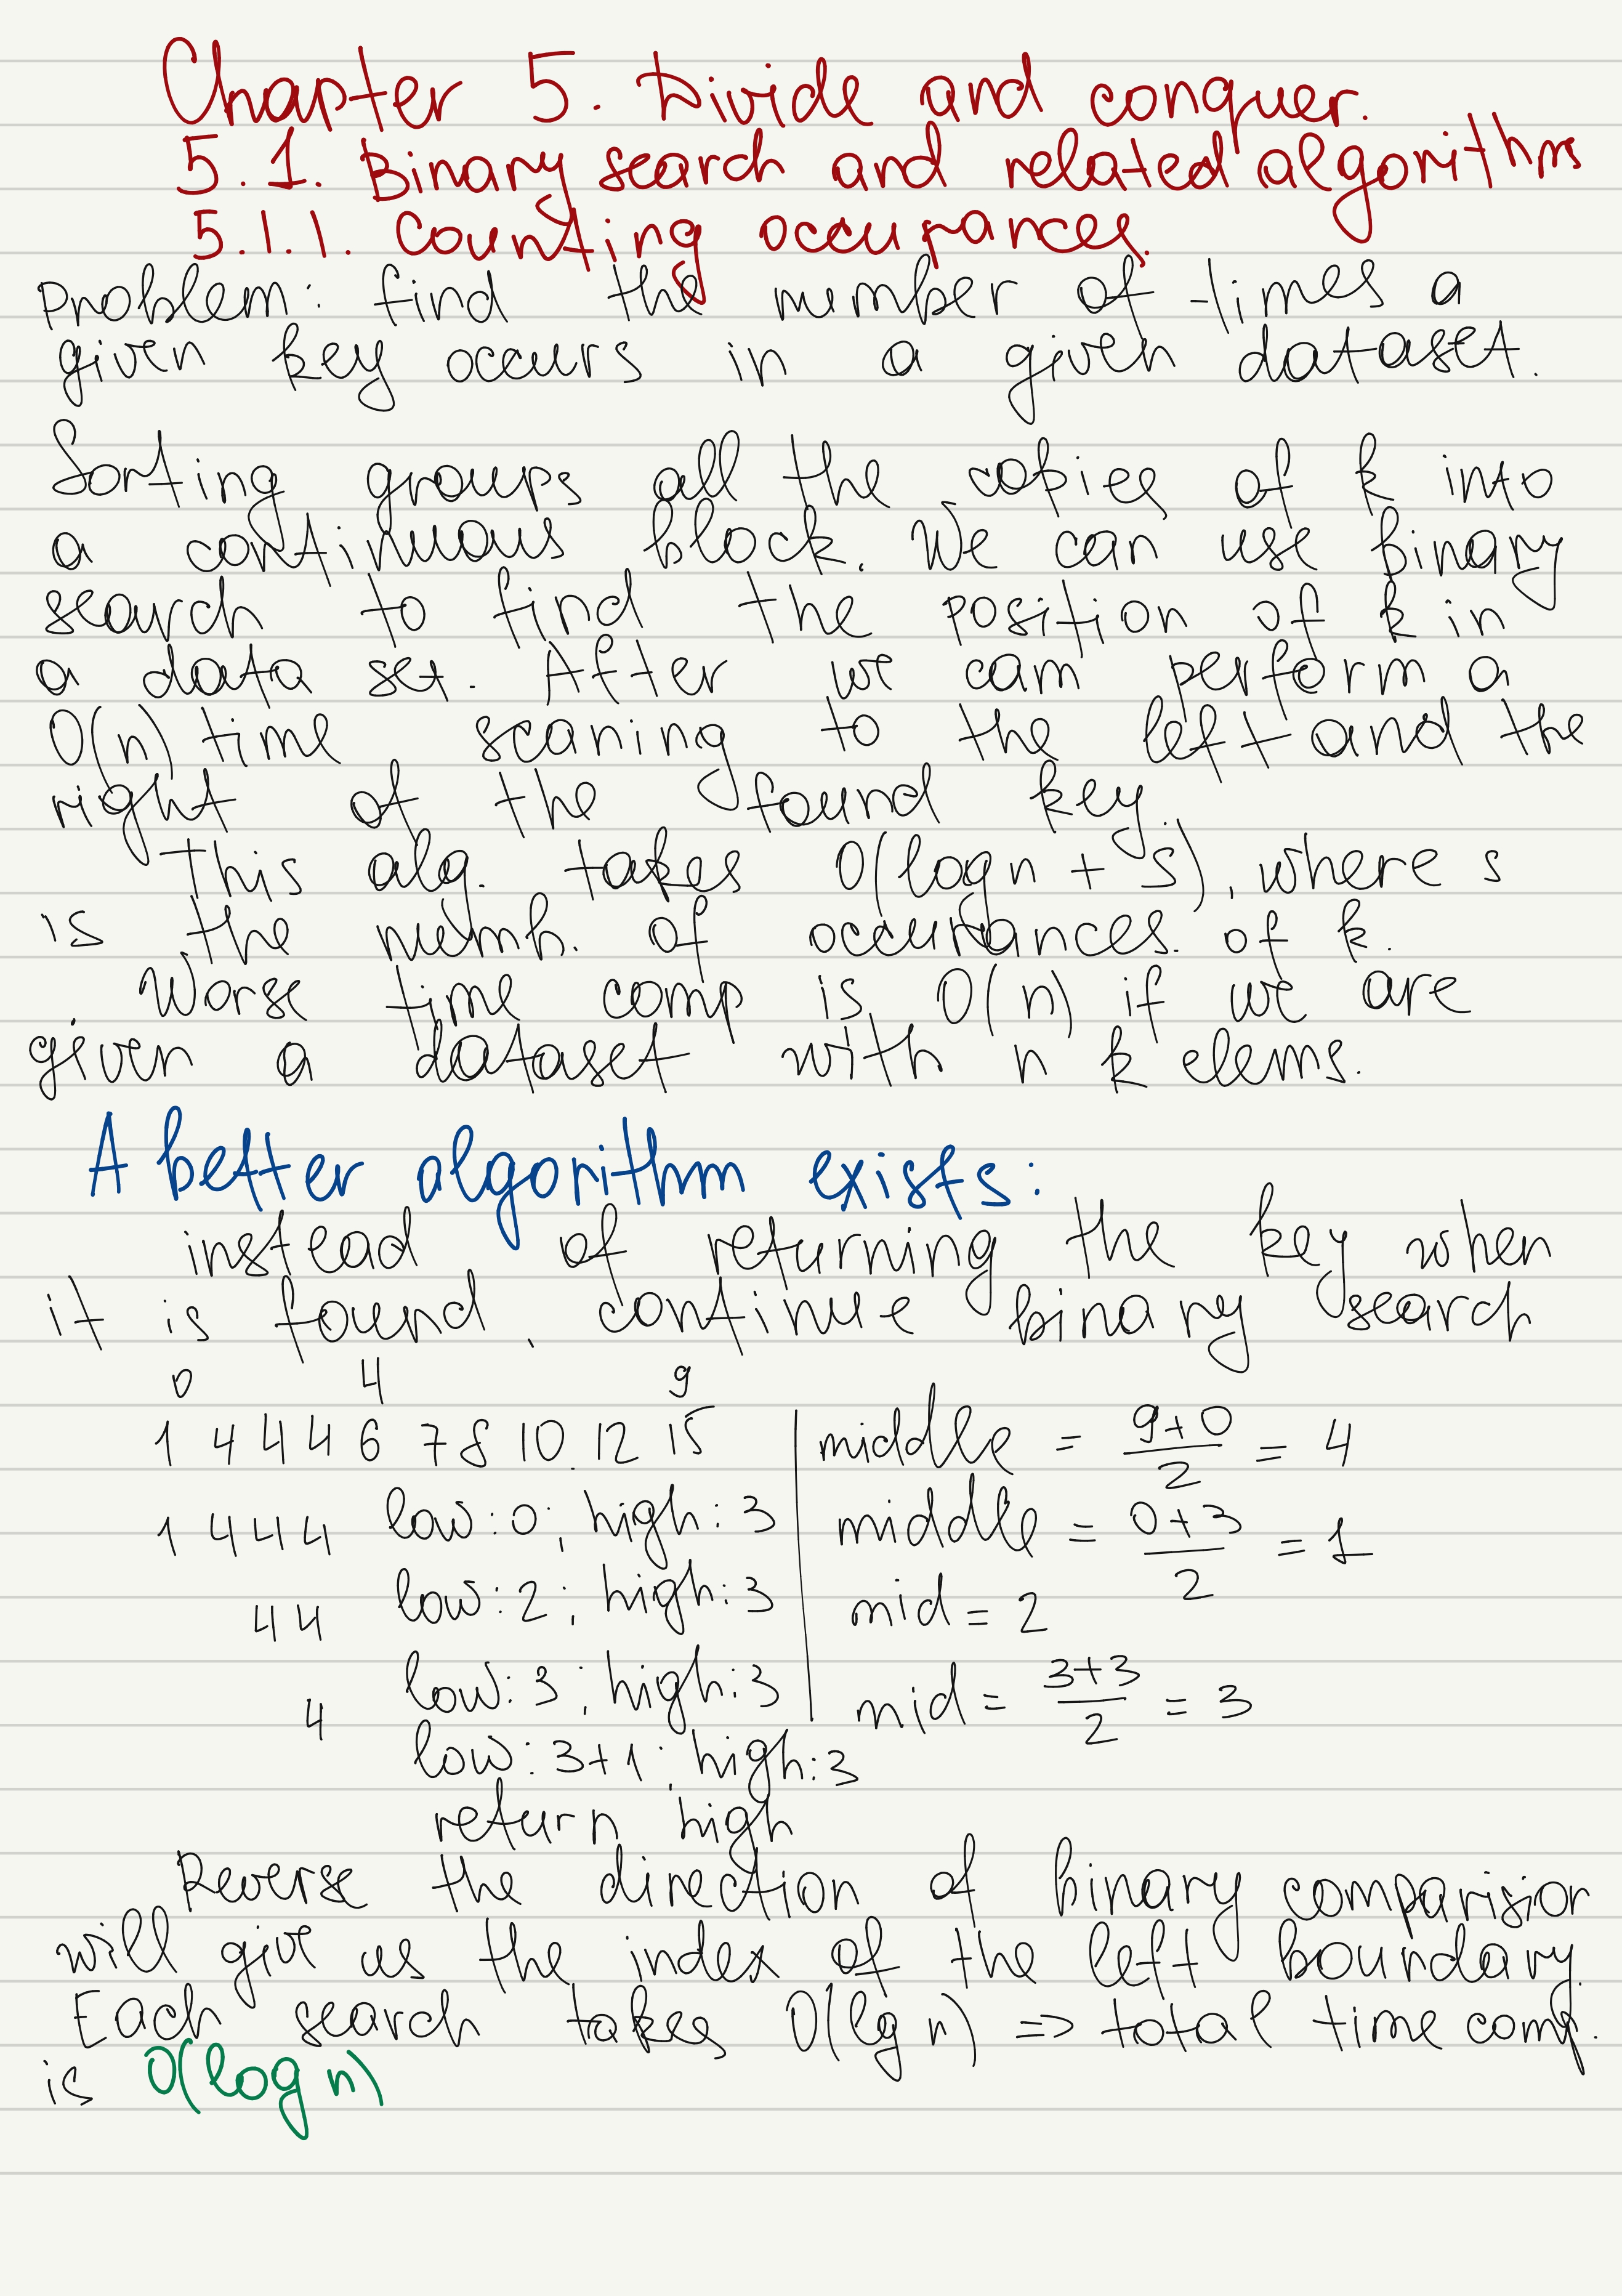 Chapter 5. Divide and conquer.
5.1. Binary search and related algorithms
5.1.1. Counting occurances.
Problem: find the number of times a
given key occurs in a given dataset.
Sorting groups all the copies of k into
a continuous block. We can use binary
search to find the position of k in
a data set. After we cam perform a
O(n) time scaning to the left and the
right of the found key.
This alg. takes O(logn + s), where s
is the numb. of occurances. of k.
Worse time comp is O(n) if we are
given a dataset with n k elems.
A better algorithm exists:
instead of returning the key when
it is found, continue binary search
0 4 9
1 4 4 4 6 7 8 10 12 15 | middle = (9+0)/2 = 4
1 4 4 4 low:0; high:3 | middle = (0+3)/2 = 1
4 4 low:2; high:3 | mid = 2
4 low:3; high:3 | mid = (3+3)/2 = 3
low:3+1; high:3
return high
Reverse the direction of binary comparision
will give us the index of the left boundary.
Each search takes O(lg n) => total time comp.
is O(log n)